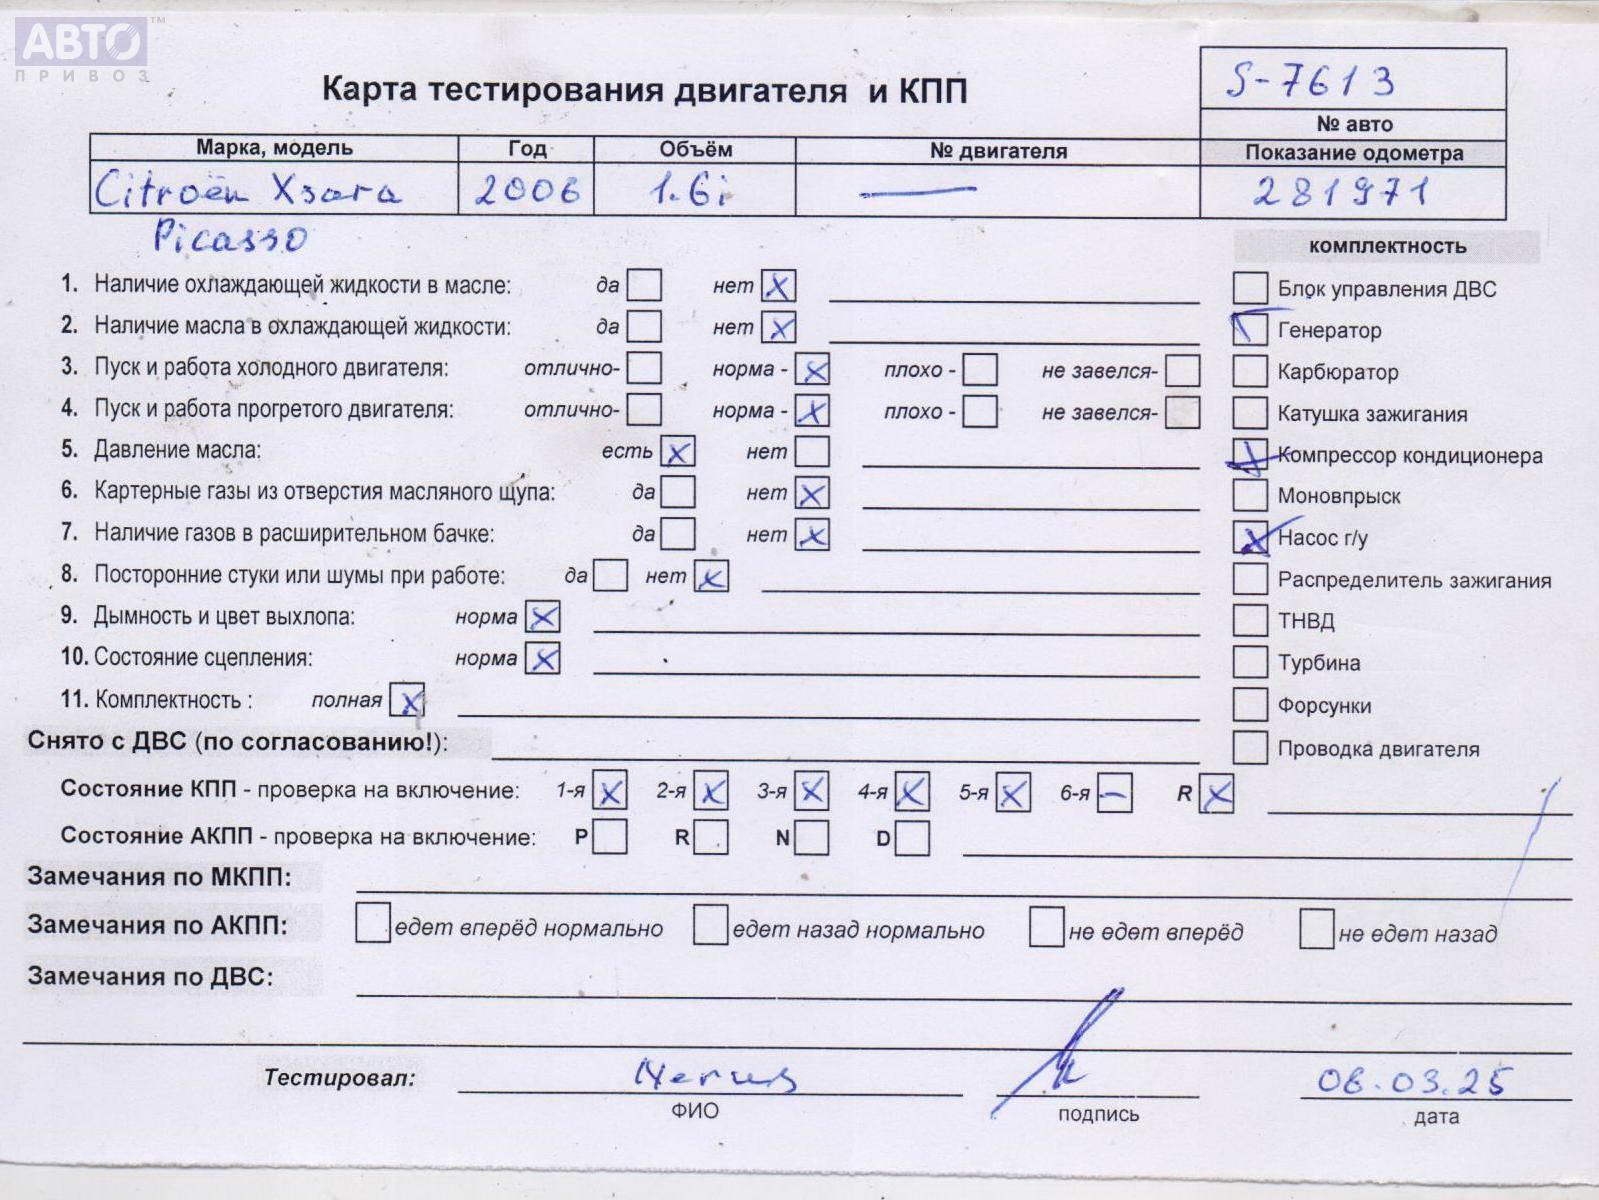 АВТО™
ПРИВОЗ
Карта тестирования двигателя и КПП
S-7613
№ авто
Марка, модель Год Объём № двигателя Показание одометра
Citroën Xsara 2006 1.6i — 281971
Picasso
комплектность
1. Наличие охлаждающей жидкости в масле: да нет X
Блок управления ДВС
2. Наличие масла в охлаждающей жидкости: да нет X
Генератор
3. Пуск и работа холодного двигателя: отлично- норма - X плохо - не завелся-
Карбюратор
4. Пуск и работа прогретого двигателя: отлично- норма - X плохо - не завелся-
Катушка зажигания
5. Давление масла: есть X нет
Компрессор кондиционера
6. Картерные газы из отверстия масляного щупа: да нет X
Моновпрыск
7. Наличие газов в расширительном бачке: да нет X
X Насос г/у
8. Посторонние стуки или шумы при работе: да нет X
Распределитель зажигания
9. Дымность и цвет выхлопа: норма X
ТНВД
10. Состояние сцепления: норма X
Турбина
11. Комплектность : полная X
Форсунки
Снято с ДВС (по согласованию!):
Проводка двигателя
Состояние КПП - проверка на включение: 1-я X 2-я X 3-я X 4-я X 5-я X 6-я — R X
Состояние АКПП - проверка на включение: P R N D
Замечания по МКПП:
Замечания по АКПП: едет вперёд нормально едет назад нормально не едет вперёд не едет назад
Замечания по ДВС:
Тестировал: 06.03.25
ФИО подпись дата